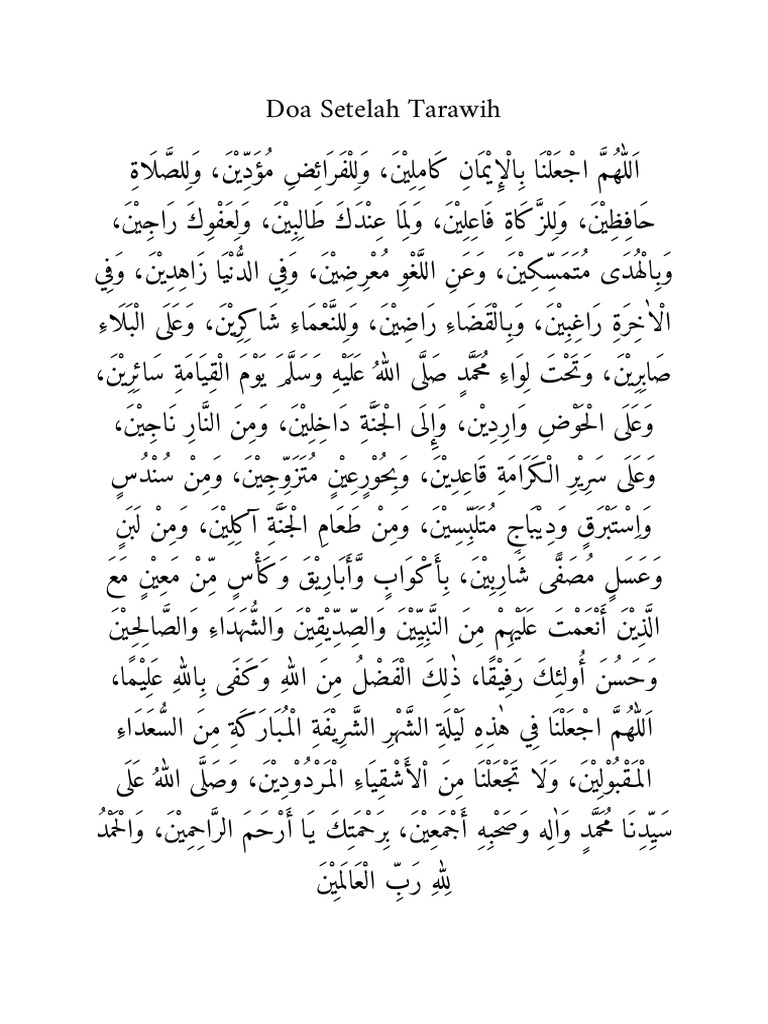 Doa Setelah Tarawih
اَللّٰهُمَّ اجْعَلْنَا بِالْإِيْمَانِ كَامِلِيْنَ، وَلِلْفَرَائِضِ مُؤَدِّيْنَ، وَلِلصَّلَاةِ
حَافِظِيْنَ، وَلِلزَّكَاةِ فَاعِلِيْنَ، وَلِمَا عِنْدَكَ طَالِبِيْنَ، وَلِعَفْوِكَ رَاجِيْنَ،
وَبِالْهُدَى مُتَمَسِّكِيْنَ، وَعَنِ اللَّغْوِ مُعْرِضِيْنَ، وَفِي الدُّنْيَا زَاهِدِيْنَ، وَفِي
الْاٰخِرَةِ رَاغِبِيْنَ، وَبِالْقَضَاءِ رَاضِيْنَ، وَلِلنَّعْمَاءِ شَاكِرِيْنَ، وَعَلَى الْبَلَاءِ
صَابِرِيْنَ، وَتَحْتَ لِوَاءِ مُحَمَّدٍ صَلَّى اللهُ عَلَيْهِ وَسَلَّمَ يَوْمَ الْقِيَامَةِ سَائِرِيْنَ،
وَعَلَى الْحَوْضِ وَارِدِيْن، وَإِلَى الْجَنَّةِ دَاخِلِيْنَ، وَمِنَ النَّارِ نَاجِيْنَ،
وَعَلَى سَرِيْرِ الْكَرَامَةِ قَاعِدِيْنَ، وَبِحُوْرٍعِيْنٍ مُتَزَوِّجِيْنَ، وَمِنْ سُنْدُسٍ
وَاِسْتَبْرَقٍ وَدِيْبَاجٍ مُتَلَبِّسِيْنَ، وَمِنْ طَعَامِ الْجَنَّةِ آكِلِيْنَ، وَمِنْ لَبَنٍ
وَعَسَلٍ مُصَفًّى شَارِبِيْنَ، بِأَكْوَابٍ وَّأَبَارِيْقَ وَكَأْسٍ مِّنْ مَعِيْنٍ مَعَ
الَّذِيْنَ أَنْعَمْتَ عَلَيْهِمْ مِنَ النَّبِيِّيْنَ وَالصِّدِّيْقِيْنَ وَالشُّهَدَاءِ وَالصَّالِحِيْنَ
وَحَسُنَ أُولئِكَ رَفِيْقًا، ذٰلِكَ الْفَضْلُ مِنَ اللهِ وَكَفَى بِاللهِ عَلِيْمًا،
اَللّٰهُمَّ اجْعَلْنَا فِي هٰذِهِ لَيْلَةِ الشَّهْرِ الشَّرِيْفَةِ الْمُبَارَكَةِ مِنَ السُّعَدَاءِ
الْمَقْبُوْلِيْنَ، وَلَا تَجْعَلْنَا مِنَ اْلأَشْقِيَاءِ الْمَرْدُوْدِيْنَ، وَصَلَّى اللهُ عَلَى
سَيِّدِنَا مُحَمَّدٍ وَاٰلِه وَصَحْبِهِ أَجْمَعِيْنَ، بِرَحْمَتِكَ يَا أَرْحَمَ الرَّاحِمِيْنَ، وَالْحَمْدُ
لِلهِ رَبِّ الْعَالَمِيْنَ